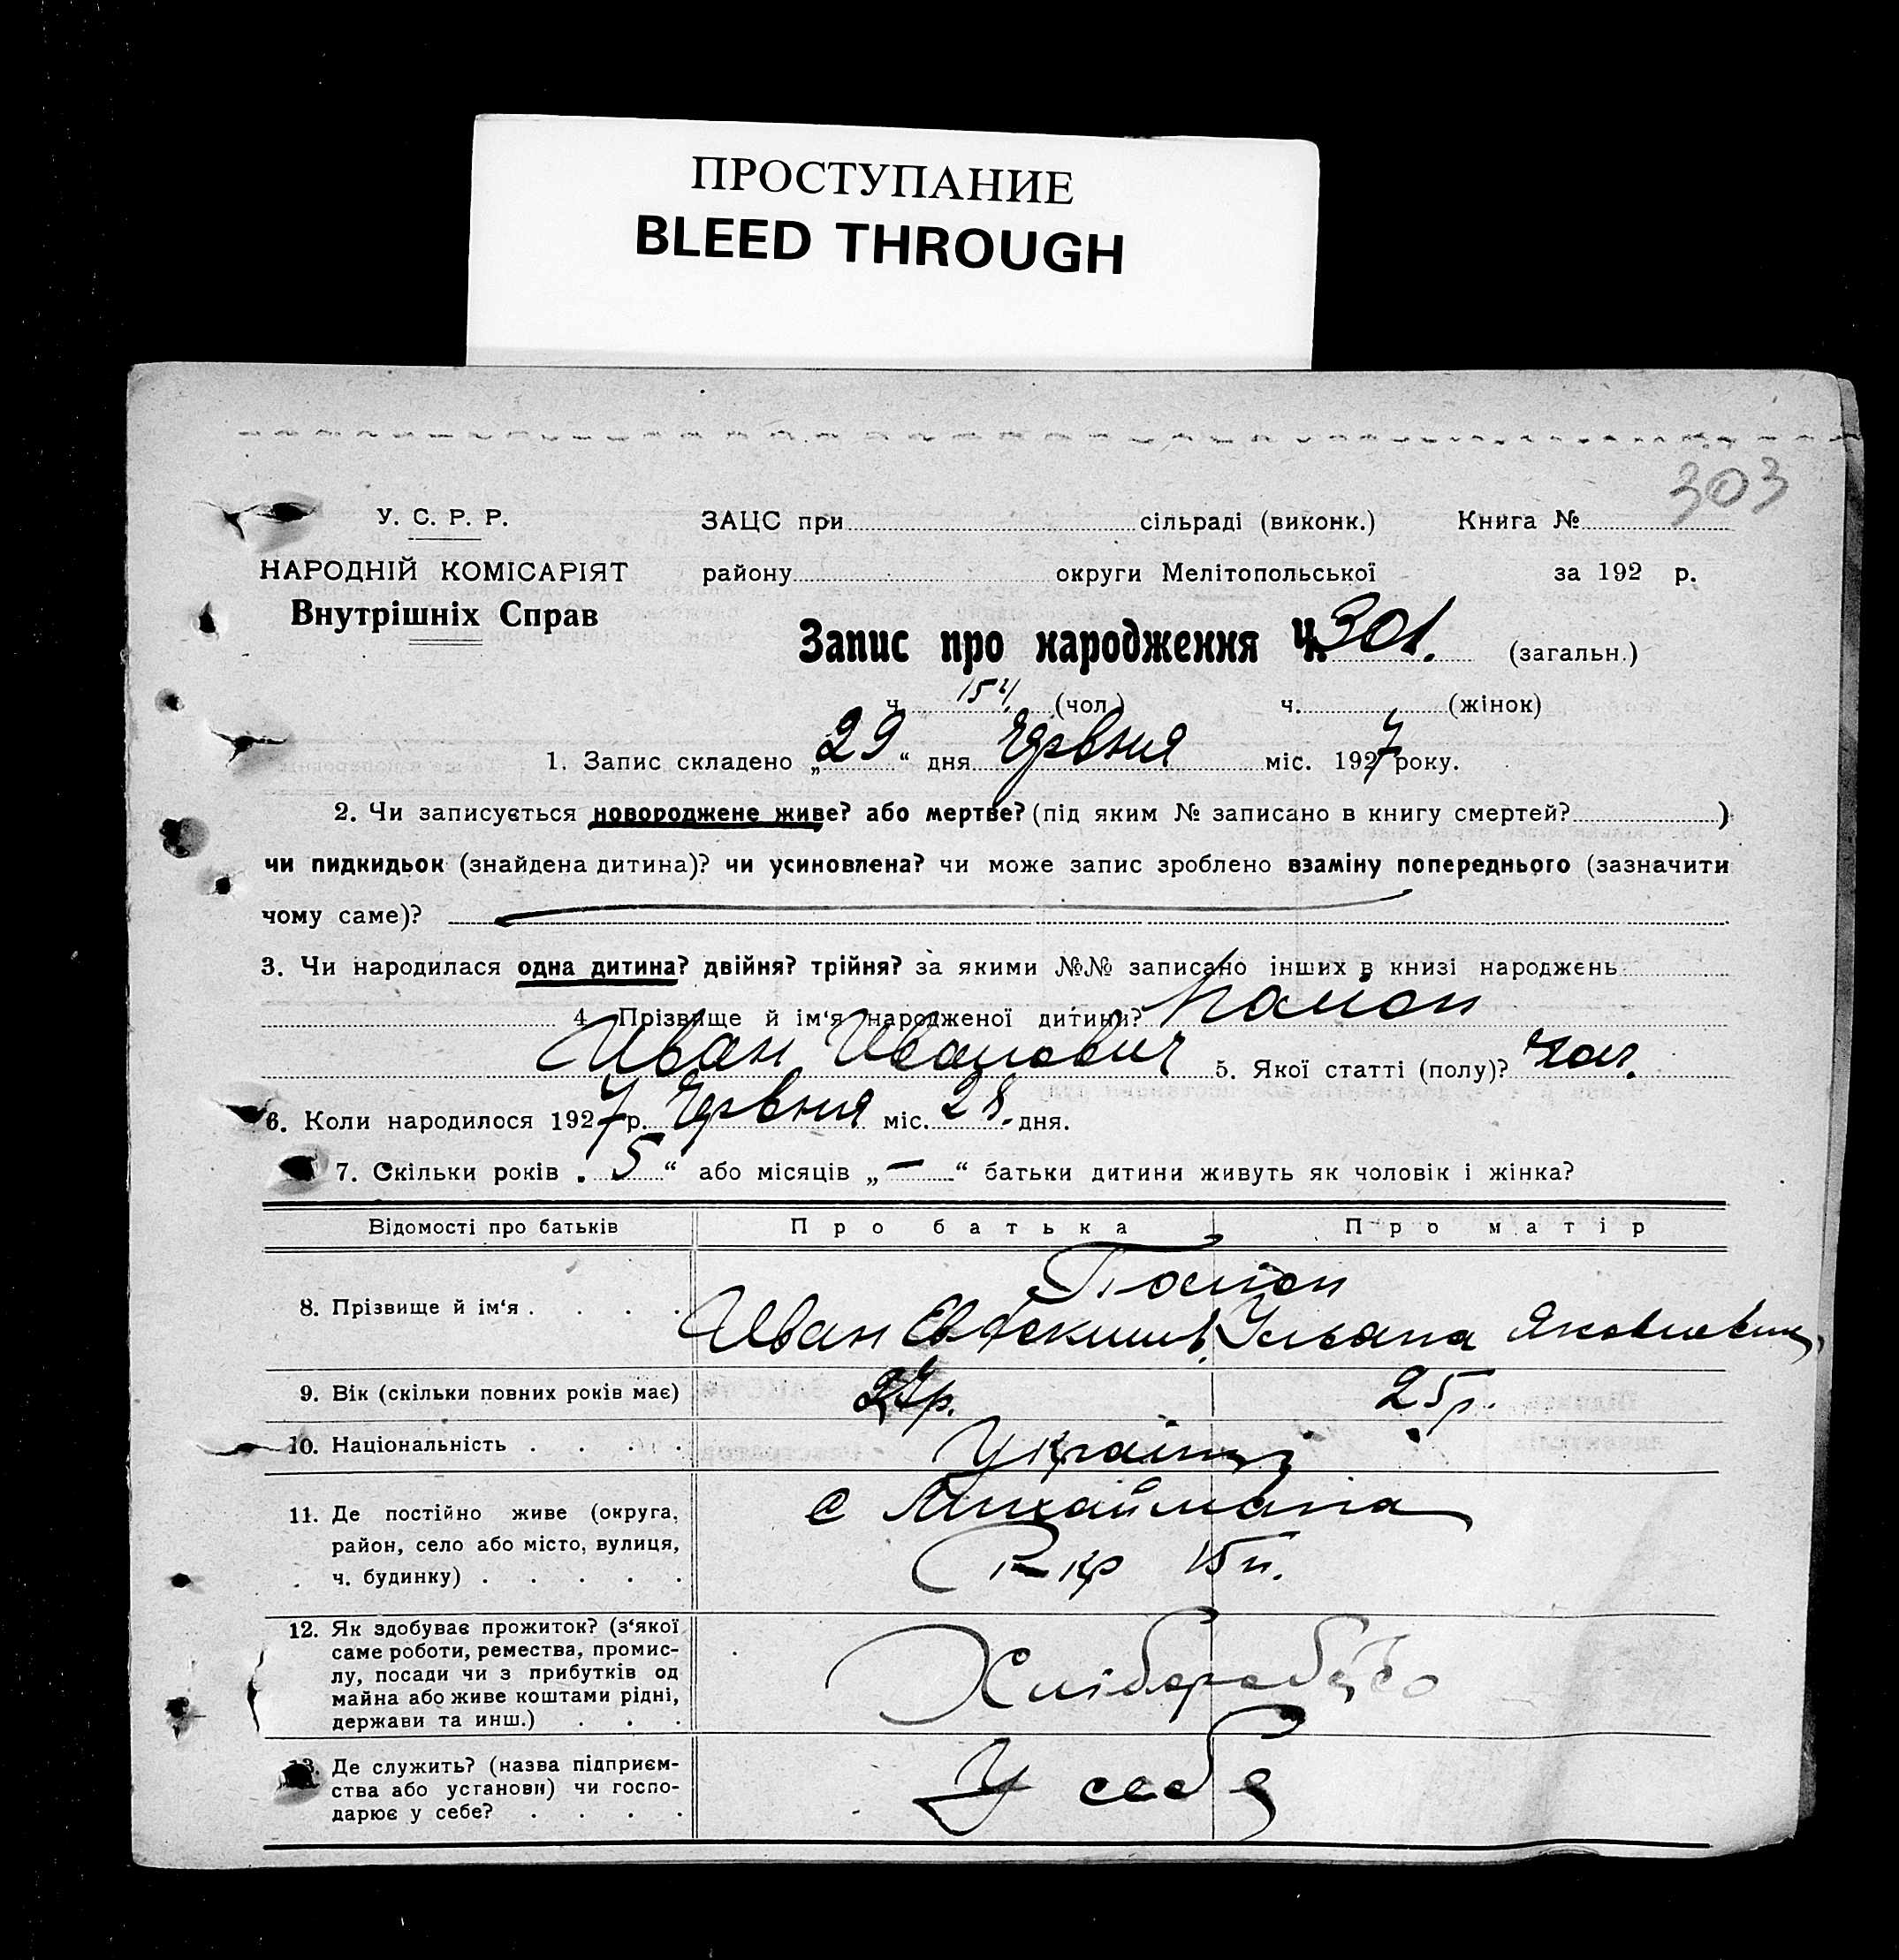 ПРОСТУПАНИЕ
BLEED THROUGH
303
У. С. Р. Р.
НАРОДНІЙ КОМІСАРІЯТ
Внутрішніх Справ
ЗАЦС при сільраді (виконк.) Книга №
району округи Мелітопольської за 192 р.
Запис про народження Ч. 301. (загальн.)
ч. (чол.) ч. (жінок)
1. Запис складено „29“ дня Червня міс. 1927 року.
2. Чи записується новороджене живе? або мертве? (під яким № записано в книгу смертей? )
чи пидкидьок (знайдена дитина)? чи усиновлена? чи може запис зроблено взаміну попереднього (зазначити
чому саме)?
3. Чи народилася одна дитина? двійня? трійня? за якими №№ записано інших в книзі народжень
4. Прізвище й ім‘я народженої дитини?
Иван Иванович 5. Якої статті (полу)? чол.
6. Коли народилося 1927 р. Червня міс. 28 дня.
7. Скільки років „5“ або місяців „—“ батьки дитини живуть як чоловік і жінка?
Відомості про батьків Про батька Про матір
8. Прізвище й ім‘я . . . .
Иван
9. Вік (скільки повних років має) 25 р.
10. Національність . . . . Українці
11. Де постійно живе (округа, с Михаймана
район, село або місто, вулиця,
ч. будинку) . . . . .
12. Як здобуває прожиток? (з‘якої
саме роботи, ремества, промис-
лу, посади чи з прибутків од
майна або живе коштами рідні,
держави та инш.) . . .
Хліборобство
13. Де служить? (назва підприєм-
ства або установи) чи госпо-
дарює у себе? . . . .
У себе